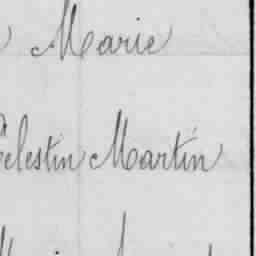 Marie
Célestin Martin